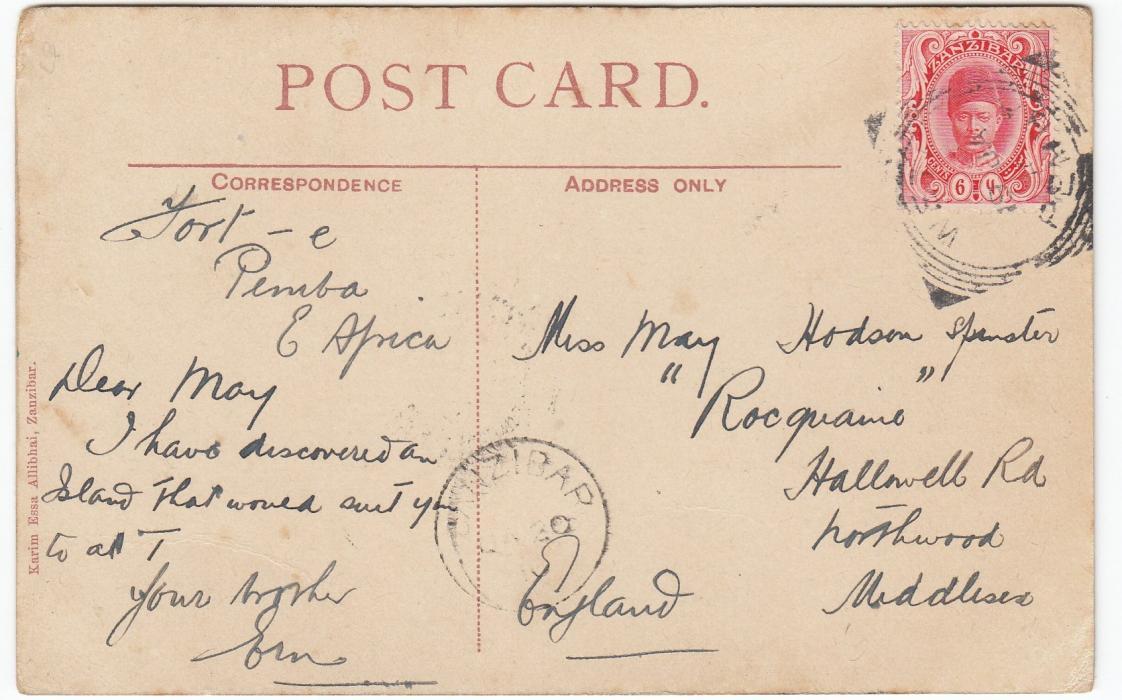 POST CARD.
CORRESPONDENCE
ADDRESS ONLY
ZANZIBAR
CENTS
6 ٦
Fort - e
Pemba
E Africa
Dear May
I have discovered an
Island that would suit you
to a T
Your brother
Ern
Miss May Hodson Spinster
" Rocquaine "
Hallowell Rd
Northwood
Middlesex
England
ZANZIBAR
Karim Essa Allibhai, Zanzibar.